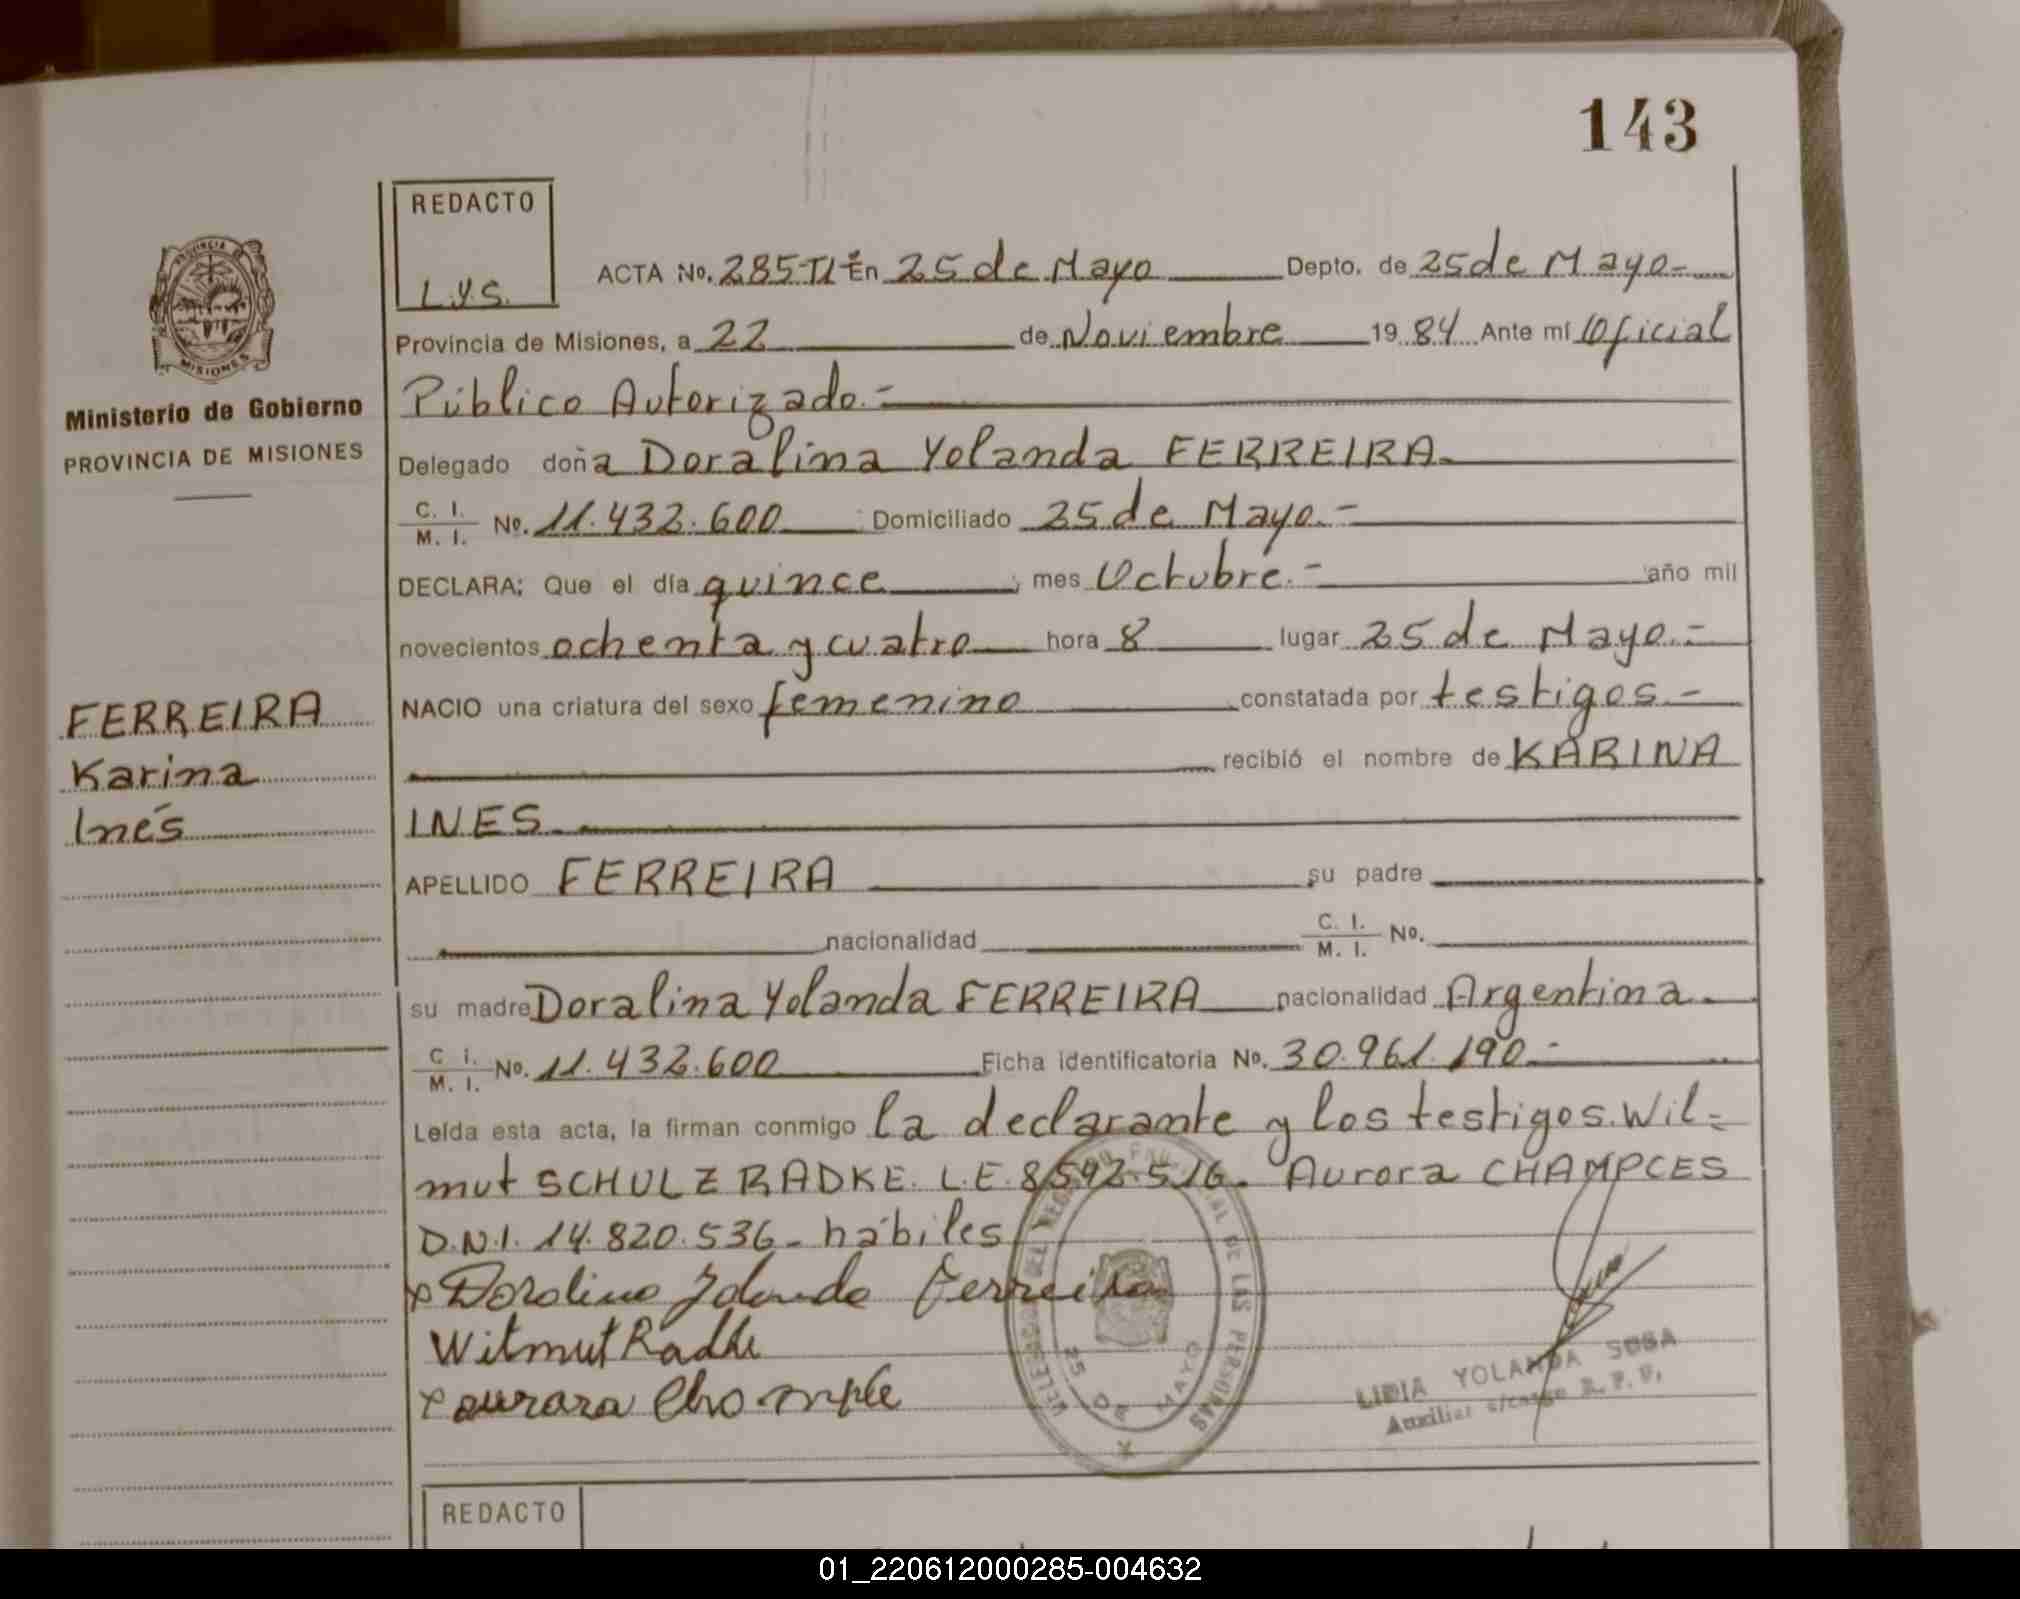 143
REDACTO
L.Y.S.
ACTA No. 285-TI- En 25 de Mayo Depto. de 25 de Mayo-
Provincia de Misiones, a 22 de Noviembre 1984 Ante mí Oficial
Público Autorizado.-
Ministerio de Gobierno
PROVINCIA DE MISIONES
Delegado doña Doralina Yolanda FERREIRA.
C. I. / M. I. No. 11.432.600 Domiciliado 25 de Mayo.-
DECLARA: Que el día quince, mes Octubre.- año mil
novecientos ochenta y cuatro hora 8 lugar 25 de Mayo.-
FERREIRA
Karina
Inés
NACIO una criatura del sexo femenino constatada por testigos.-
recibió el nombre de KARINA
INES.
APELLIDO FERREIRA su padre
nacionalidad C. I. / M. I. No.
su madre Doralina Yolanda FERREIRA nacionalidad Argentina.
C. I. / M. I. No. 11.432.600 Ficha identificatoria No. 30.961.190.-
Leída esta acta, la firman conmigo la declarante y los testigos. Wil=
mut SCHULZ RADKE. L.E. 8.592.516. Aurora CHAMPCES
D.N.I. 14.820.536- hábiles
x Doralina Yolanda Ferreira
Wilmut Radke
x aurora Chample
DEL REGISTRO PROVINCIAL DE LAS PERSONAS
25 DE MAYO
MISIONES
LIDIA YOLANDA SOSA
Auxiliar a/cargo R. P. P.
REDACTO
01_220612000285-004632